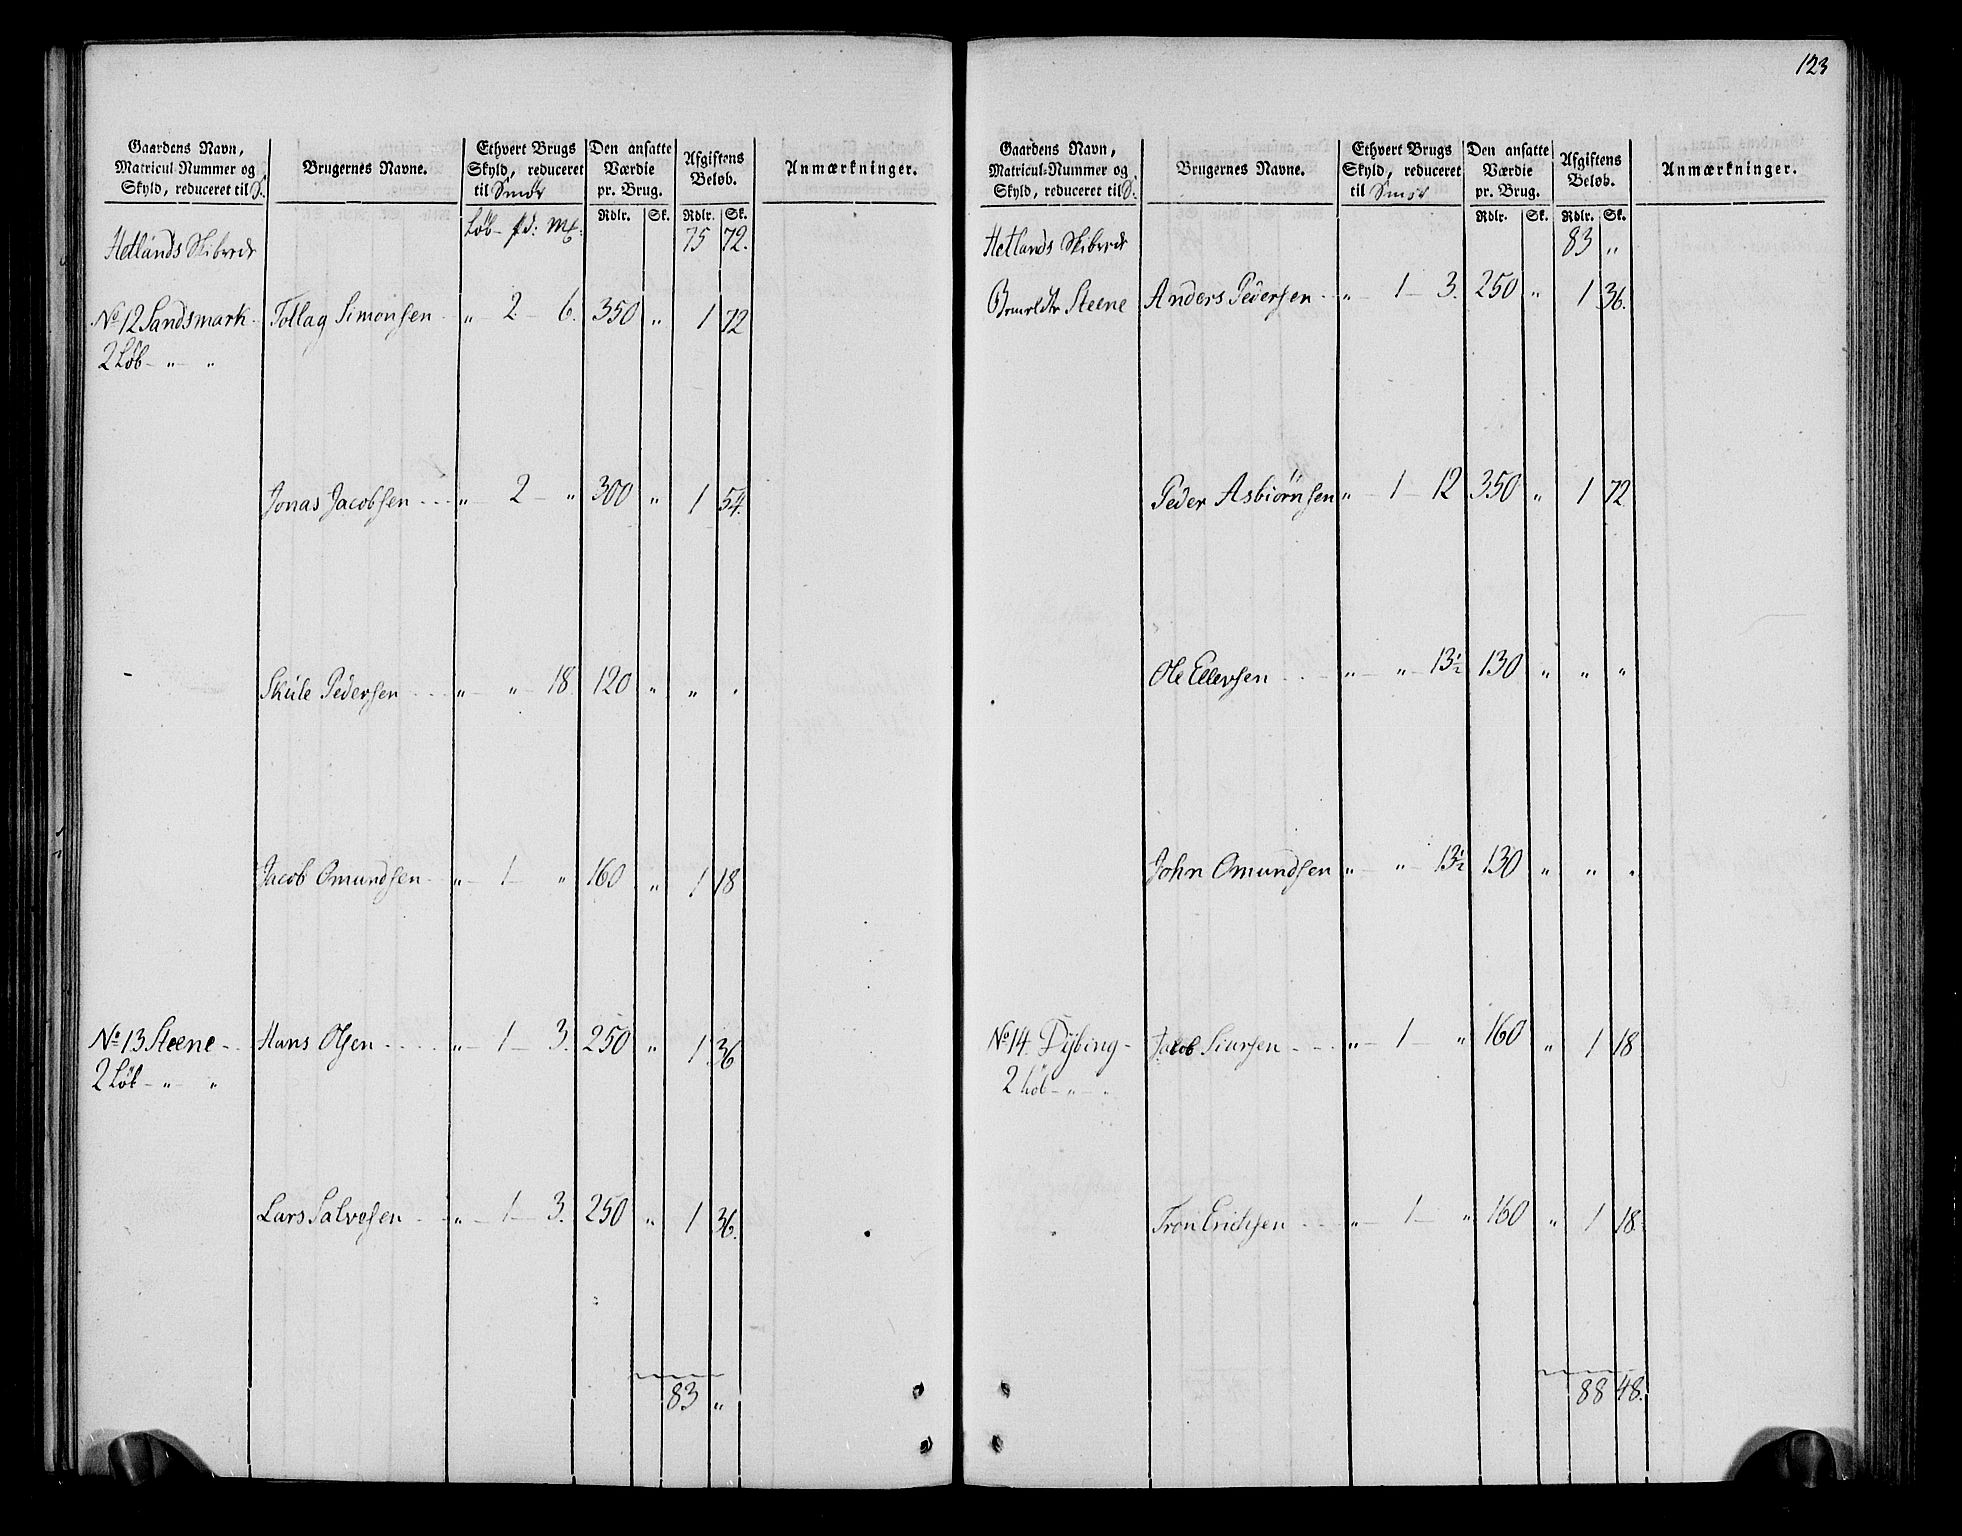 123
Gaardens Navn, Matricul-Nummer og Skyld, reduceret til S. | Brugernes Navne. | Ethvert Brugs Skyld, reduceret til Smør | Den ansatte Værdie pr. Brug. | Afgiftens Beløb. | Anmærkninger.
Løb - pd: Mk: | Rdlr. | Sk. | Rdlr. | Sk.
Hetlands Skibrede 75 72.
No 12 Sandsmark - Tollag Simonsen - „ 2 - 6. 350 „ 1 72
2 Løb - „ - „
Jonas Jacobsen - - - „ 2 - „ 300 „ 1 54.
Skule Pedersen - - - „ - „ - 18 120 „ „ „
Jacob Omundsen - „ - 1 - „ 160 „ 1 18
No 13 Steene - - Hans Olsen - - - - „ - 1 - 3. 250 „ 1 36
2 Løb - „ - „
Lars Salvesen - - „ - 1 - 3. 250 „ 1 36.
83 „
Gaardens Navn, Matricul-Nummer og Skyld, reduceret til S. | Brugernes Navne. | Ethvert Brugs Skyld, reduceret til Smør | Den ansatte Værdie pr. Brug. | Afgiftens Beløb. | Anmærkninger.
Rdlr. | Sk. | Rdlr. | Sk.
Hetlands Skibrede 83 „
Steene Anders Pedersen - - „ - 1 - 3. 250 „ 1 36.
Peder Asbiørnsen „ - 1 - 12 350 „ 1 72
Ole Ellevsen - - - „ - „ - 13½ 130 „ „ „
John Omundsen „ - „ - 13½ 130 „ „ „
No 14. Dybing - Jacob Siursen - - - „ - 1 - „ 160 „ 1 18
2 Løb - „ - „
Tron Erichsen - - - „ - 1 - „ 160 „ 1 18.
88 48.